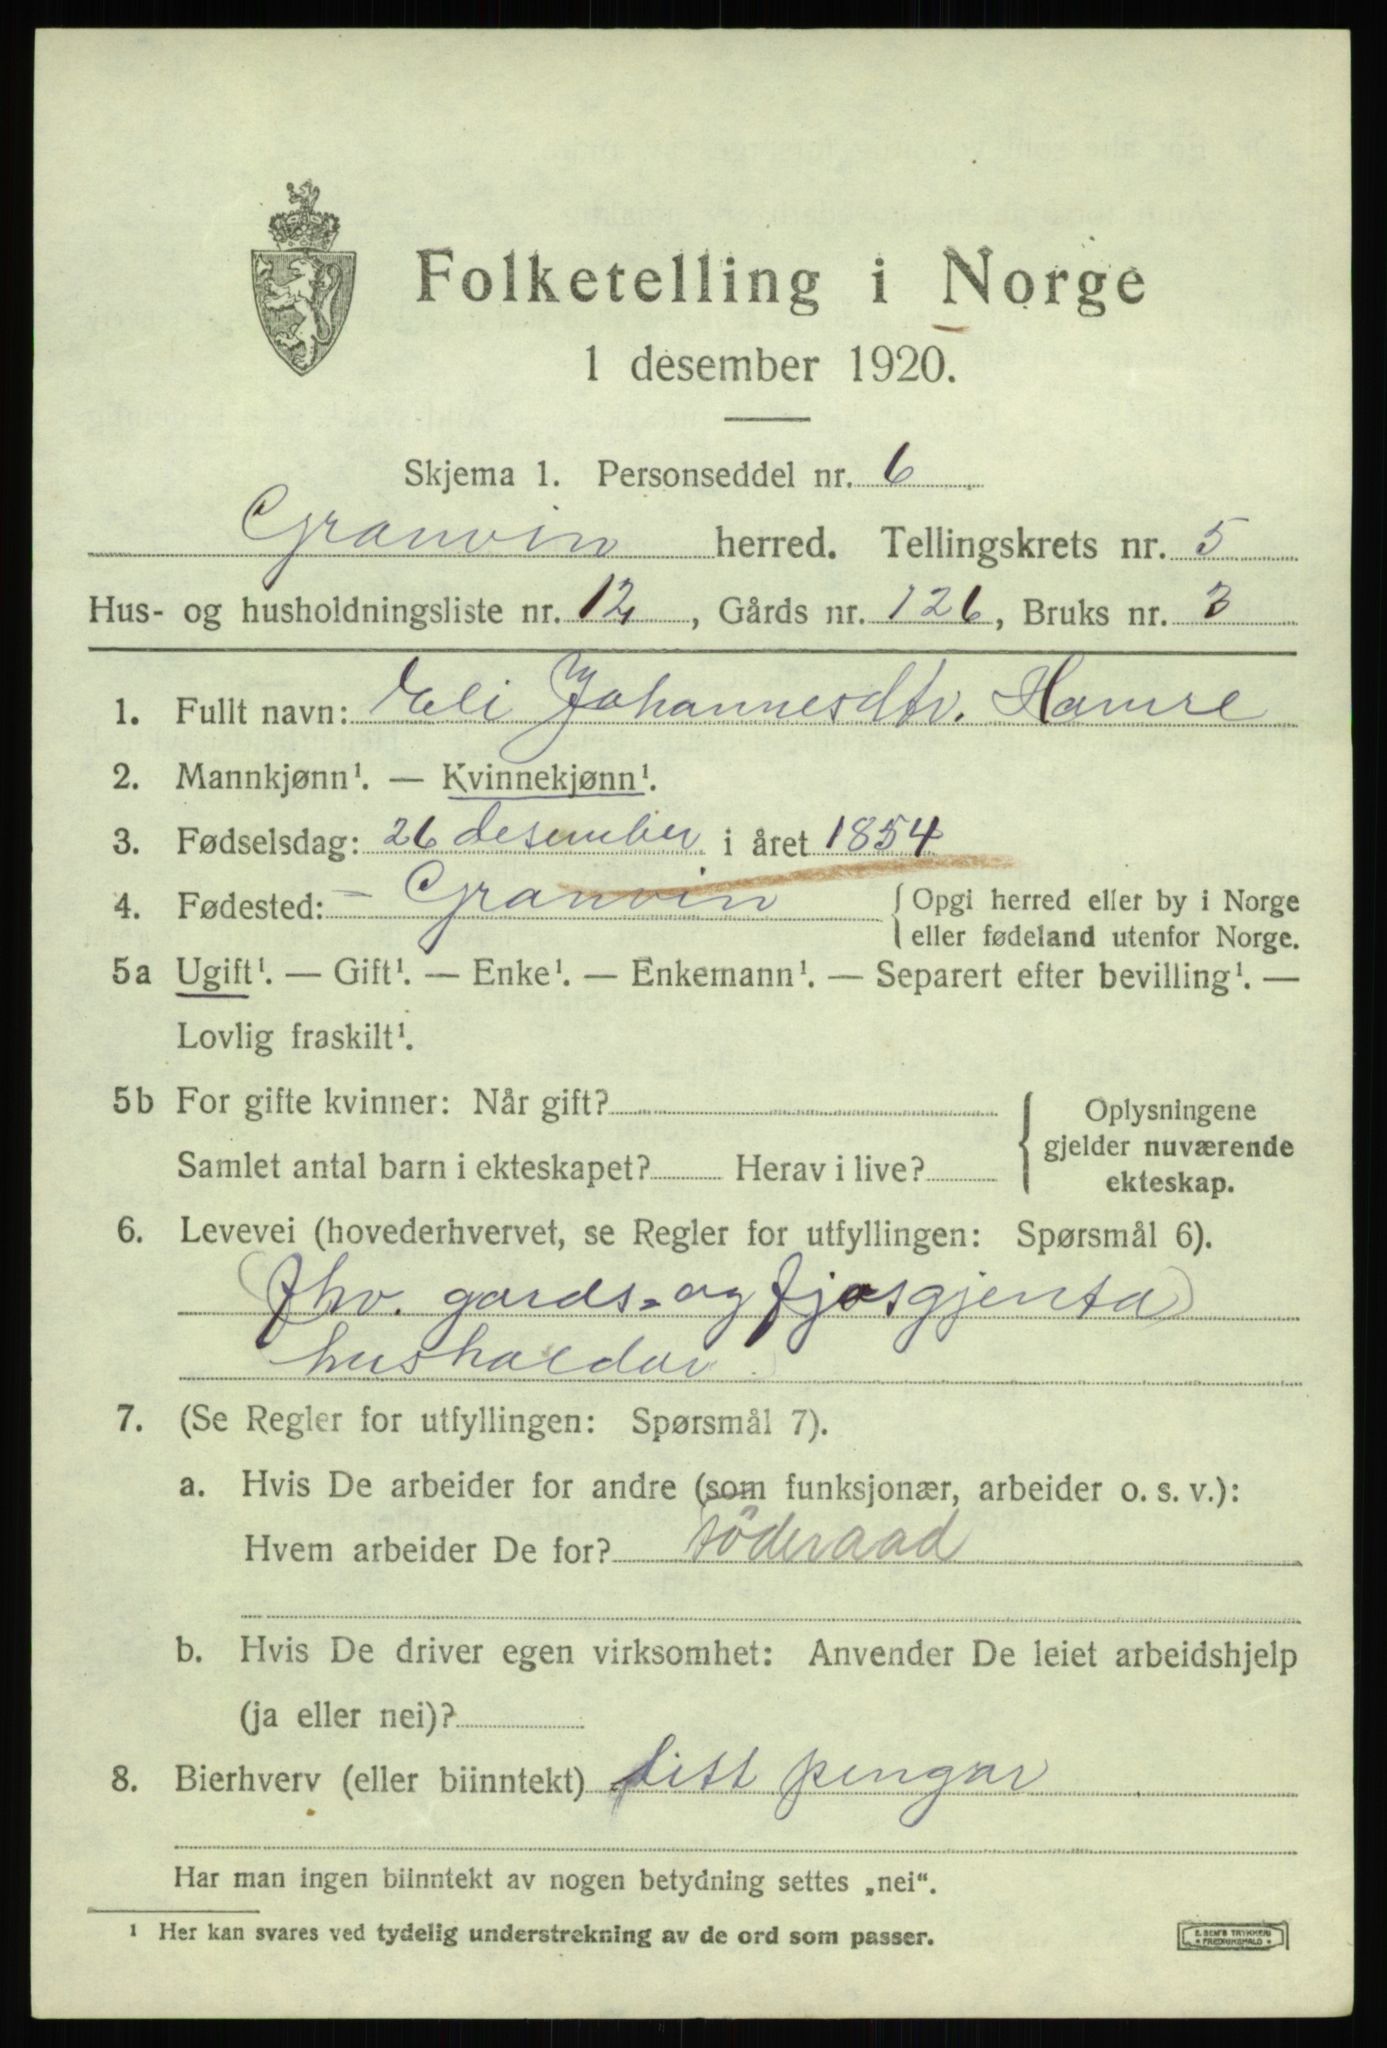 Folketelling i Norge
1 desember 1920.
Skjema 1. Personseddel nr. 6
Granvin herred. Tellingskrets nr. 5
Hus- og husholdningsliste nr. 12, Gårds nr. 126, Bruks nr. 3
1. Fullt navn: Eli Johannesdtr. Hamre
2. Mannkjønn¹. — Kvinnekjønn¹.
3. Fødselsdag: 26 desember i året 1854
4. Fødested: - Granvin { Opgi herred eller by i Norge
eller fødeland utenfor Norge.
5a Ugift¹. — Gift¹. — Enke¹. — Enkemann¹. — Separert efter bevilling¹. —
Lovlig fraskilt¹.
5b For gifte kvinner: Når gift?
Samlet antal barn i ekteskapet? Herav i live?
} Oplysningene
gjelder nuværende
ekteskap.
6. Levevei (hovederhvervet, se Regler for utfyllingen: Spørsmål 6).
(fhv. gards- og fjosgjenta)
husholdar
7. (Se Regler for utfyllingen: Spørsmål 7).
a. Hvis De arbeider for andre (som funksjonær, arbeider o. s. v.):
Hvem arbeider De for? föderaad
b. Hvis De driver egen virksomhet: Anvender De leiet arbeidshjelp
(ja eller nei)?
8. Bierhverv (eller biinntekt) litt pengar
Har man ingen biinntekt av nogen betydning settes „nei“.
¹ Her kan svares ved tydelig understrekning av de ord som passer.
E. SEM'S TRYKKERI
FREDRIKSHALD